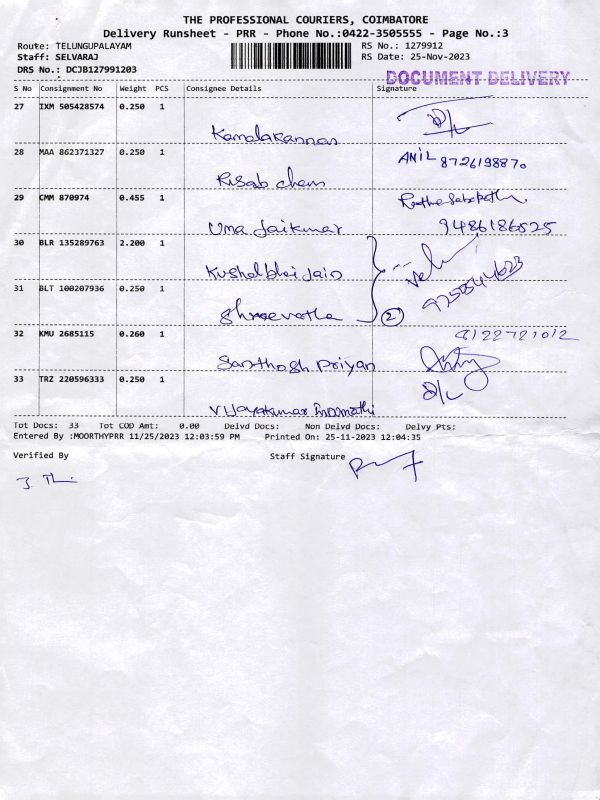 THE PROFESSIONAL COURIERS, COIMBATORE
Delivery Runsheet - PRR - Phone No.:0422-3505555 - Page No.:3
Route: TELUNGUPALAYAM RS No.: 1279912
Staff: SELVARAJ RS Date: 25-Nov-2023
DRS No.: DCJB127991203
DOCUMENT DELIVERY
S No Consignment No Weight PCS Consignee Details Signature
27 IXM 505428574 0.250 1
Kamalakannan
28 MAA 862371327 0.250 1
ANIL 8726198870
Risab chem
29 CMM 870974 0.455 1
Uma Jaikumar 9486186525
30 BLR 135289763 2.200 1
Kushalbhai Jain
31 BLT 100207936 0.250 1
Shreevatha 2
32 KMU 2685115 0.260 1
9122721012
Santhosh Priyan
33 TRZ 220596333 0.250 1
D/L
Vijayakumar
Tot Docs: 33 Tot COD Amt: 0.00 Delvd Docs: Non Delvd Docs: Delvy Pts:
Entered By :MOORTHYPRR 11/25/2023 12:03:59 PM Printed On: 25-11-2023 12:04:35
Verified By Staff Signature